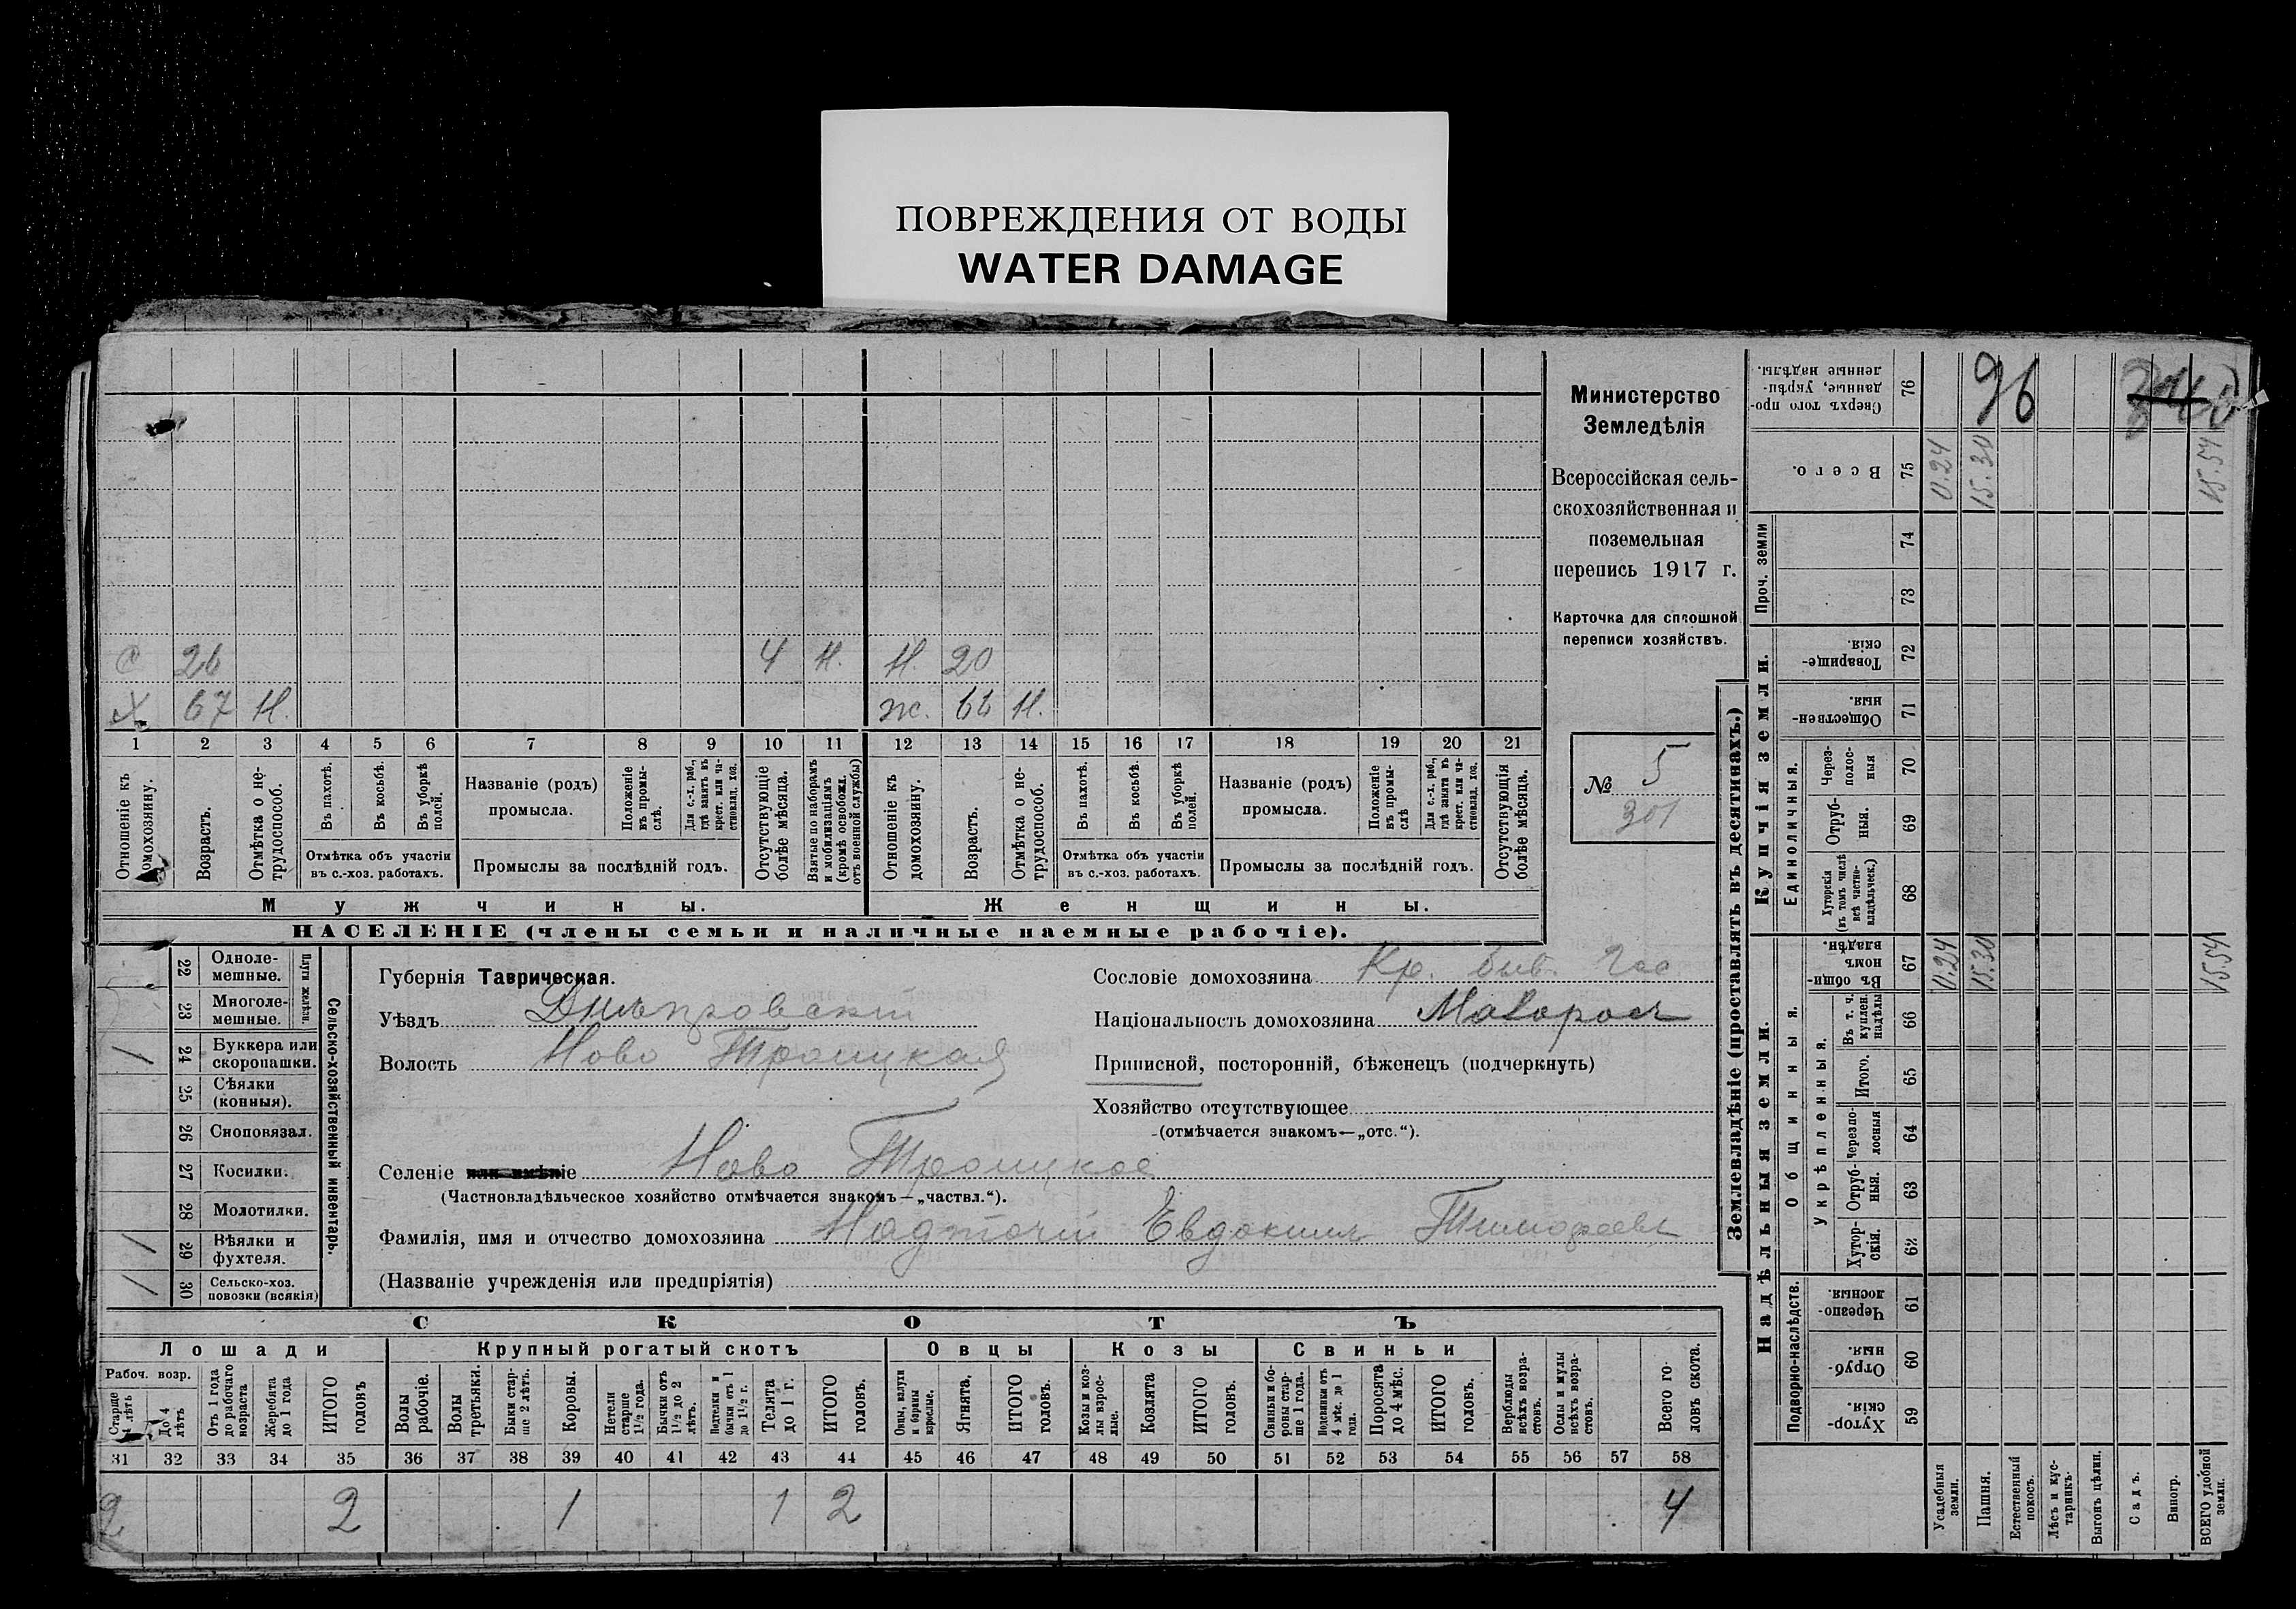 ПОВРЕЖДЕНИЯ ОТ ВОДЫ
WATER DAMAGE
С 26 4 Н. Н. 20
Х 67 Н. ж. 66 Н.
1 2 3 4 5 6 7 8 9 10 11 12 13 14 15 16 17 18 19 20 21
Отношеніе къ домохозяину.
Возрастъ.
Отмѣтка о не-
трудоспособ.
Въ пахотѣ.
Въ косьбѣ.
Въ уборкѣ полей.
Отмѣтка объ участіи
въ с.-хоз. работахъ.
Названіе (родъ)
промысла.
Положеніе
въ промы-
слѣ.
Для с.-х. раб.,
гдѣ занятъ въ
крест. или ча-
стновлад. хоз.
Промыслы за послѣдній годъ.
Отсутствующіе
болѣе мѣсяца.
Взятые по наборамъ
и мобилизаціямъ
(кромѣ освобожд.
отъ военной службы)
Отношеніе къ
домохозяину.
Возрастъ.
Отмѣтка о не-
трудоспособ.
Въ пахотѣ.
Въ косьбѣ.
Въ уборкѣ
полей.
Отмѣтка объ участіи
въ с.-хоз. работахъ.
Названіе (родъ)
промысла.
Положеніе
въ промы-
слѣ
Для с.-х. раб.,
гдѣ занята въ
крест. или ча-
стновлад. хоз.
Промыслы за послѣдній годъ.
Отсутствующія
болѣе мѣсяца.
Мужчины.
Женщины.
НАСЕЛЕНІЕ (члены семьи и наличные наемные рабочіе).
Министерство
Земледѣлія
Всероссійская сель-
скохозяйственная и
поземельная
перепись 1917 г.
Карточка для сплошной
переписи хозяйствъ.
№ 5
301
22 Однолемешные.
23 Многолемешные.
Плуги желѣзн.
24 Буккера или
скоропашки. 1
25 Сѣялки
(конныя).
26 Сноповязал.
27 Косилки.
28 Молотилки.
29 Вѣялки и
фухтеля. 1
30 Сельско-хоз.
повозки (всякія) 1
Сельско-хозяйственный инвентарь.
Губернія Таврическая.
Уѣздъ Днѣпровскій
Волость Ново Троицкая
Селеніе Ново Троицкое
(Частновладѣльческое хозяйство отмѣчается знакомъ—„частвл.“).
Фамилія, имя и отчество домохозяина Надточій Евдокимъ Тимофеевъ
(Названіе учрежденія или предпріятія)
Сословіе домохозяина Кр. быв. Гос
Національность домохозяина Малоросъ
Приписной, посторонній, бѣженецъ (подчеркнуть)
Хозяйство отсутствующее
(отмѣчается знакомъ—„отс.“).
СКОТЪ
Лошади
Крупный рогатый скотъ
Овцы
Козы
Свиньи
Рабоч. возр.
Старше
4 лѣтъ
До 4
лѣтъ
Отъ 1 года
до рабочаго
возраста
Жеребята
до 1 года
ИТОГО
головъ
Волы
рабочіе.
Волы
третьяки.
Быки стар-
ше 2 лѣтъ.
Коровы.
Нетели
старше
1 1/2 года.
Бычки отъ
1 1/2 до 2
лѣтъ.
Подтелки и
бычки отъ 1
до 1 1/2 г.
Телята
до 1 г.
ИТОГО
головъ.
Овцы, валухи
и бараны
взрослые.
Ягнята.
ИТОГО
головъ.
Козы и коз-
лы взрос-
лые.
Козлята
ИТОГО
головъ.
Свиньи и бо-
ровы стар-
ше 1 года.
Подсвинки отъ
4 мѣс. до 1
года.
Поросята
до 4 мѣс.
ИТОГО
головъ.
Верблюды
всѣхъ возра-
стовъ.
Ослы и мулы
всѣхъ возра-
стовъ.
Всего го-
ловъ скота.
31 32 33 34 35 36 37 38 39 40 41 42 43 44 45 46 47 48 49 50 51 52 53 54 55 56 57 58
2 2 1 1 2 4
Землевладѣніе (проставлять въ десятинахъ.)
Купчія земли.
Надѣльныя земли.
96
Сверхъ того про-
данные, укрѣп-
ленные надѣлы. 76
Всего. 75 0.24 15.30 15.54
Проч. земли
74
73
Товарище-
скія. 72
Обществен-
ныя. 71
Единоличныя.
Черезполосныя 70
Отрубныя. 69
Хуторскія
(въ томъ числѣ
всѣ частно-
владѣльческ.) 68
Въ общинномъ
владѣн. 67 0.24 15.30 15.54
Общинныя.
Укрѣпленныя.
Въ т. ч.
куплен.
надѣлы 66
Итого. 65
Черезполосныя 64
Отрубныя. 63
Хуторскія. 62
Подворно-наслѣдств.
Черезполосныя. 61
Отрубныя. 60
Хуторскія. 59
Усадебныя
земли.
Пашня.
Естественный
покосъ.
Лѣсъ и кус-
тарникъ.
Выгонъ цѣлин.
Садъ.
Виногр.
ВСЕГО удобной
земли.